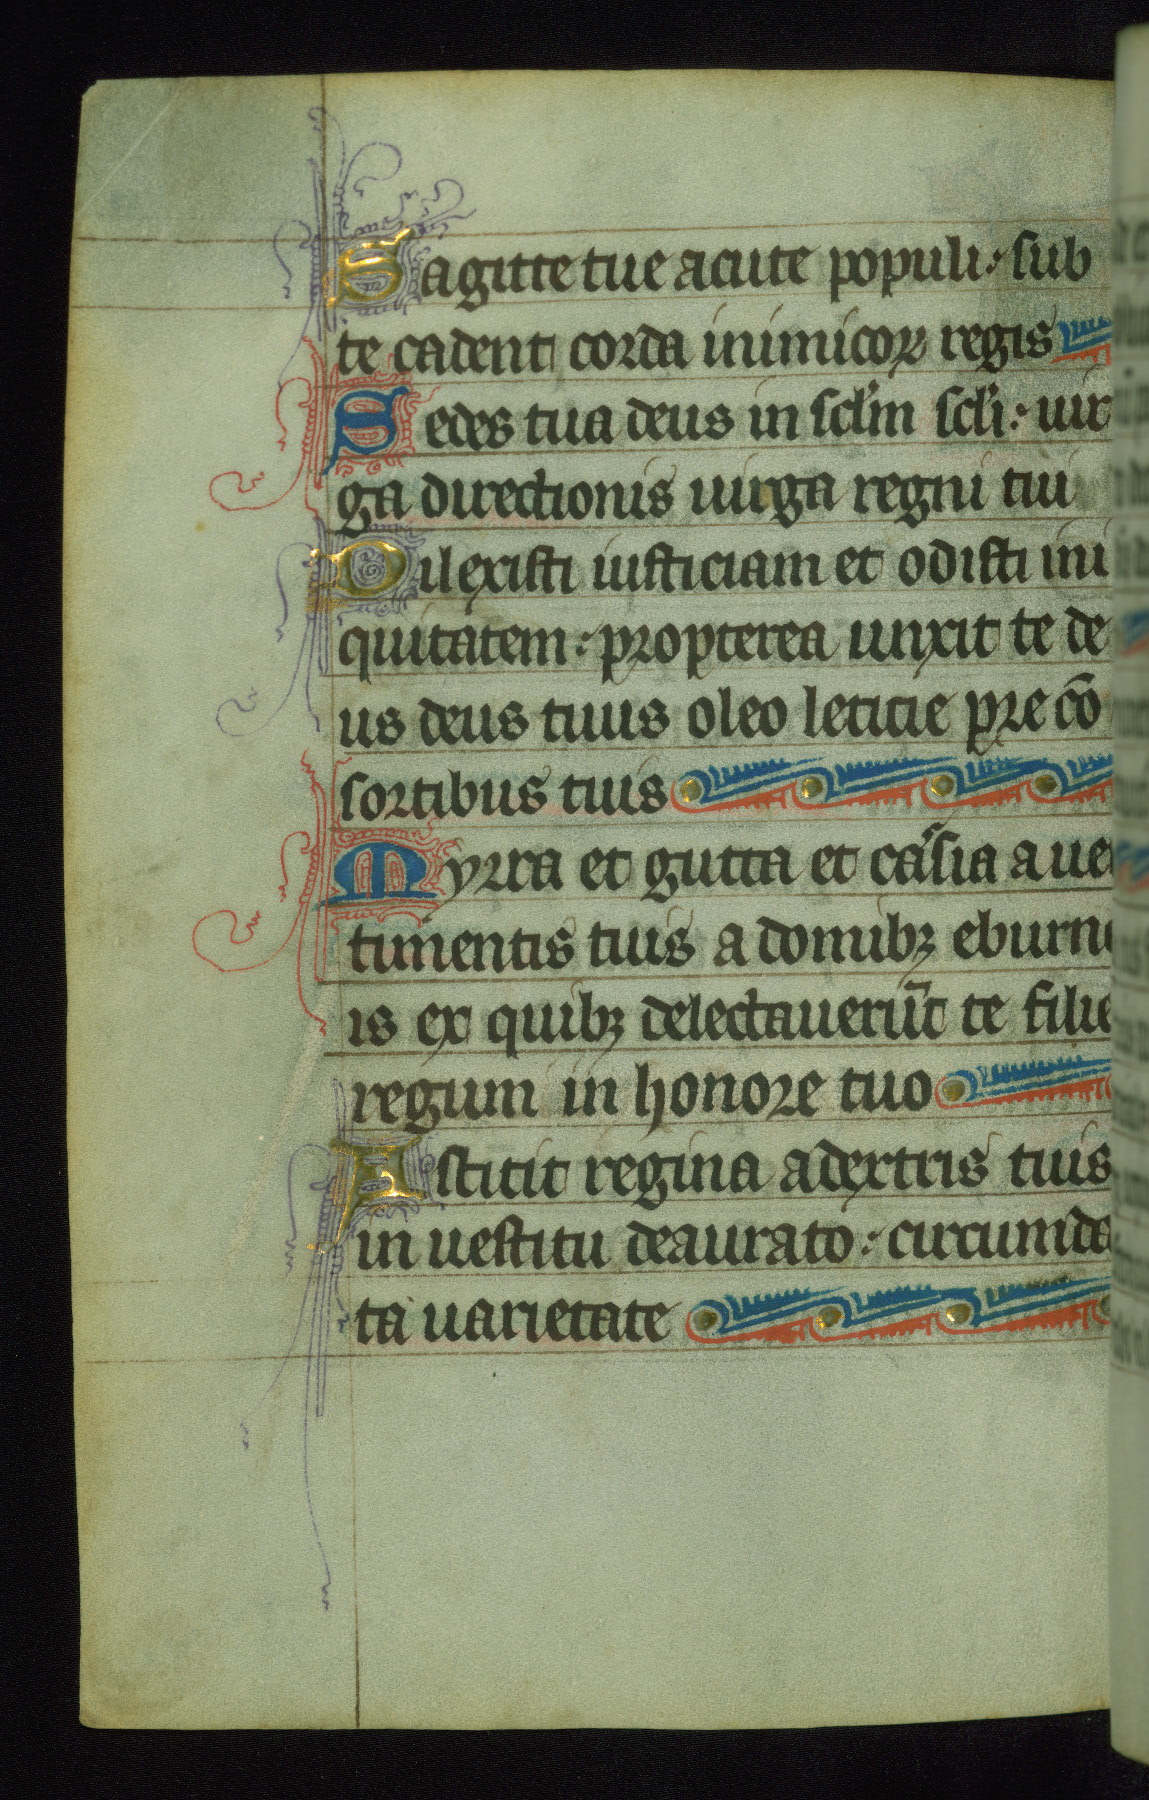 Sagitte tue acute populi: sub
te cadent corda inimicoꝝ regis
Sedes tua deus in sclm̄ scli: uir
ga directionis uirga regni tui
Dilexisti iusticiam et odisti ini
quitatem: propterea unxit te de
us deus tuus oleo leticie pre cō
sortibus tuis
Myrra et gutta et casia a ues
timentis tuis a domibꝫ eburne
is ex quibꝫ delectauerūt te filie
regum in honore tuo
Astitit regina a dextris tuis
in uestitu deaurato: circumda
ta uarietate